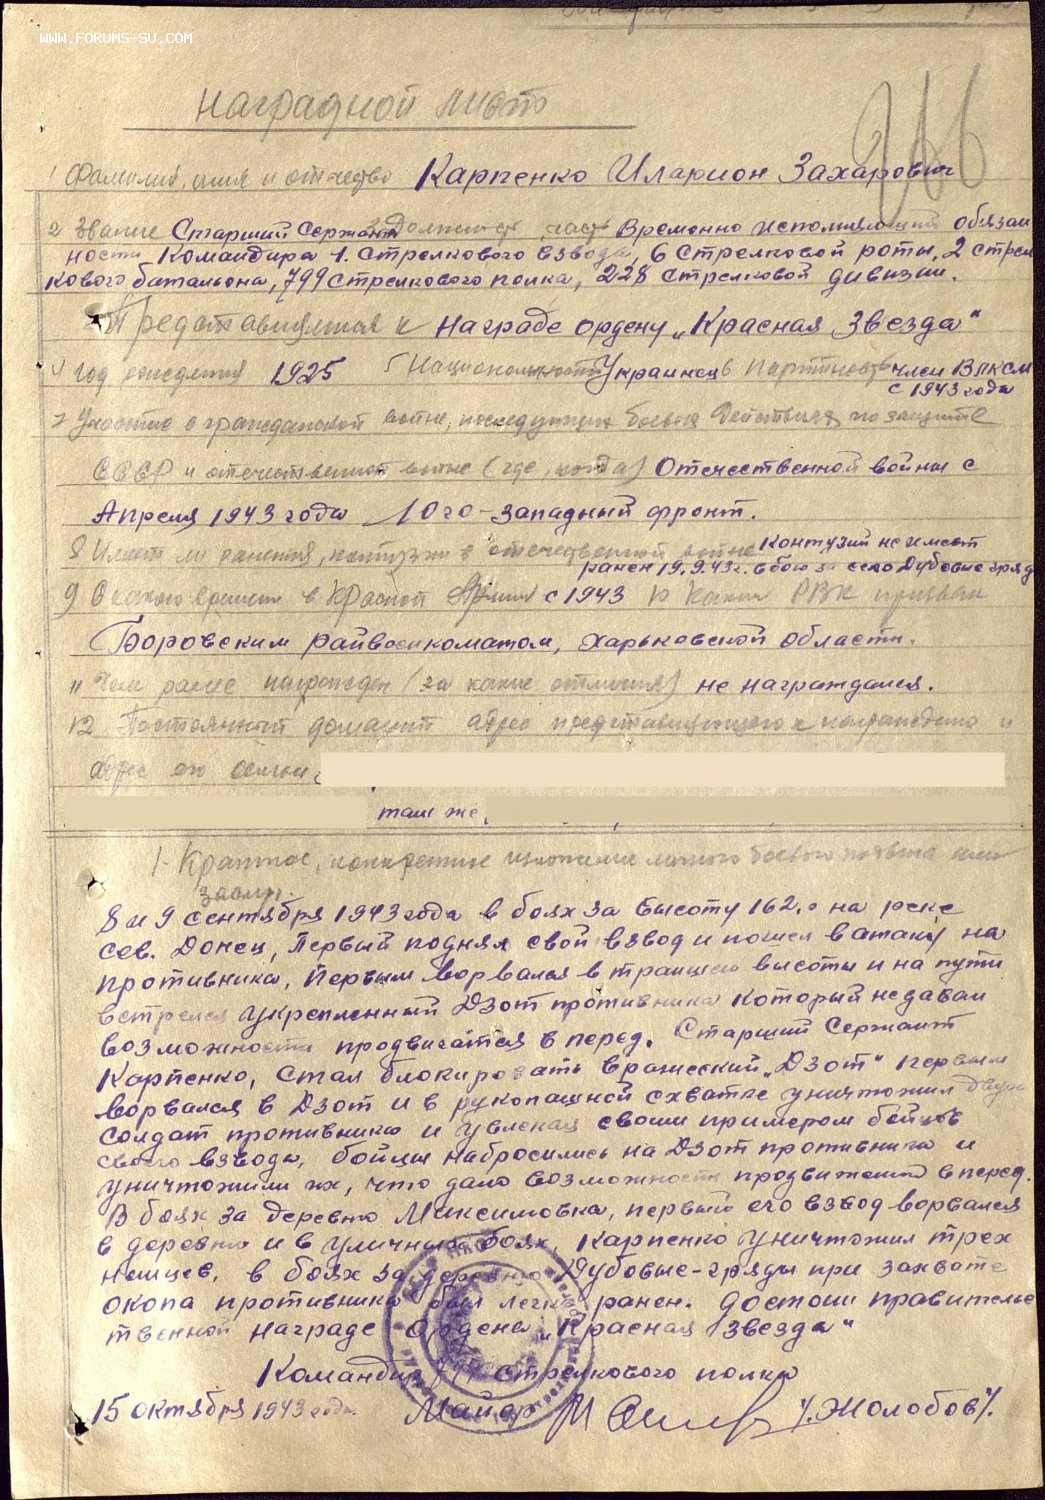 WWW.FORUMS-SU.COM
Наградной лист
266
1 Фамилия, имя и отчество Карпенко Иларион Захарович
2 Звание Старший Сержант 3 Должность, часть Временно исполняющий обязан
ности Командира 1. стрелкового взвода, 6 стрелковой роты, 2 стрел
кового батальона, 799 стрелкового полка, 228 стрелковой дивизии.
Представляется к награде ордену „Красная Звезда"
4 Год рождения 1925 5 Национальность Украинец 6 Партийность член ВЛКСМ
с 1943 года
7 Участие в гражданской войне, последующих боевых действиях по защите
СССР и отечественной войне (где, когда) Отечественной войны с
Апреля 1943 года Юго-западный фронт.
8 Имеет ли ранения, контузии в отечественной войне Контузий не имеет
ранен 19.9.43г. в бою за село Дубовые гряд
9 С какого времени в Красной Армии с 1943 10 Каким РВК призван
Боровским райвоенкоматом, Харьковской области.
11 Чем ранее награжден (за какие отличия) не награждался.
12 Постоянный домашний адрес представляемого к награждению и
адрес его семьи
там же,
1. Краткое, конкретное изложение личного боевого подвига или
заслуг.
8 и 9 сентября 1943 года в боях за высоту 162.0 на реке
Сев. Донец, Первый поднял свой взвод и пошел в атаку на
противника, Первым ворвался в траншею высоты и на пути
встретился укрепленный Дзот противника который не давал
возможности продвигатся в перед. Старший Сержант
Карпенко, стал блокировать вражеский „Дзот" первым
ворвался в Дзот и в рукопашной схватке уничтожил двух
солдат противника и увлекая своим примером бойцов
своего взвода, бойцы набросились на Дзот противника и
уничтожили их, что дало возможность продвижений в перед.
В боях за деревню Максимовка, первый его взвод ворвался
в деревню и в уличных боях, Карпенко уничтожил трех
немцев, в боях за деревню Дубовые-гряды при захвате
окопа противника был легко ранен. Достоин правительс
твенной награде ордена „Красная Звезда"
Командир 799 стрелкового полка
15 октября 1943 года. Майор /Жолобов/.